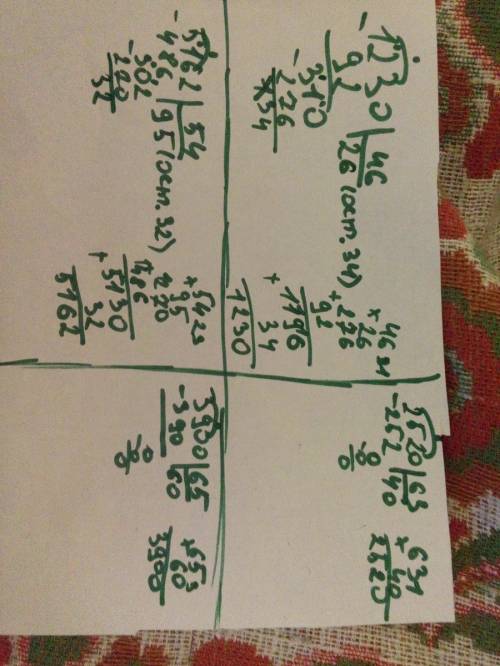 -1230|46
92|26 (ост. 34)
-310
276
34
46
×26
+276
92
1196
+
34
1230
2520|63
-252|40
0
0
63
×40
2520
-5162|54
486|95 (ост. 32)
-302
270
32
54
×95
+270
486
5130
+
32
5162
3900|65
-390|60
0
0
65
×60
3900